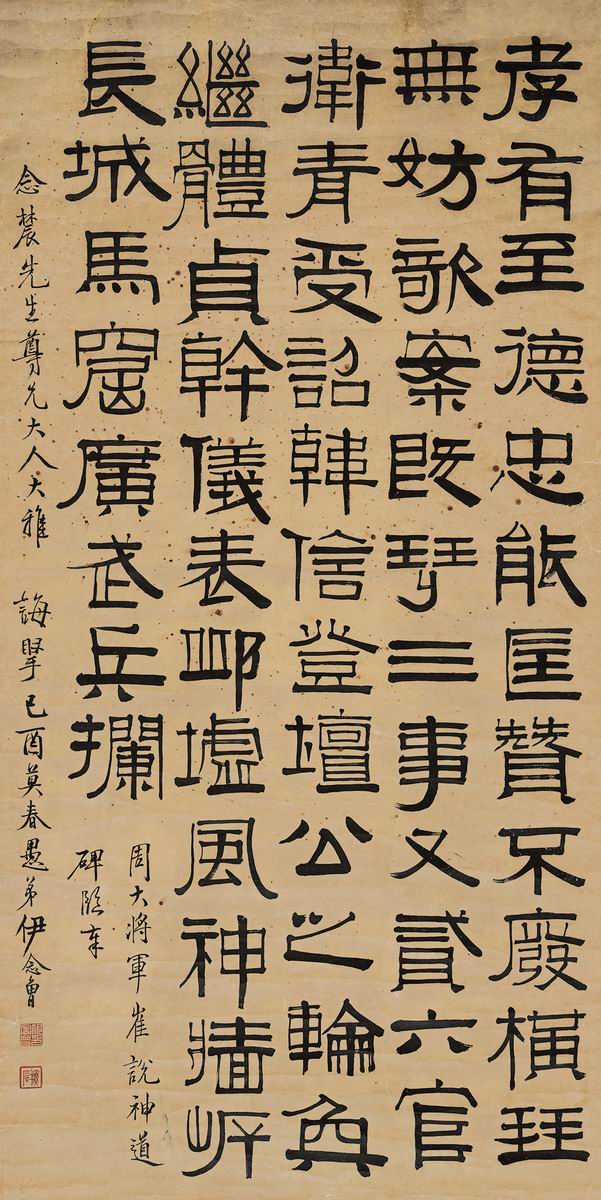 孝有至德忠能匡贊不廢橫珡
無妨歌案既三事又貳六官
衛青受詔韓信登壇公之輪奐
繼體貞幹儀表邱墟風神牆岸
長城馬窟廣武兵攔
周大將軍崔說神道
碑
念農先生尊兄大人大雅 誨 己酉莫春愚弟伊念曾